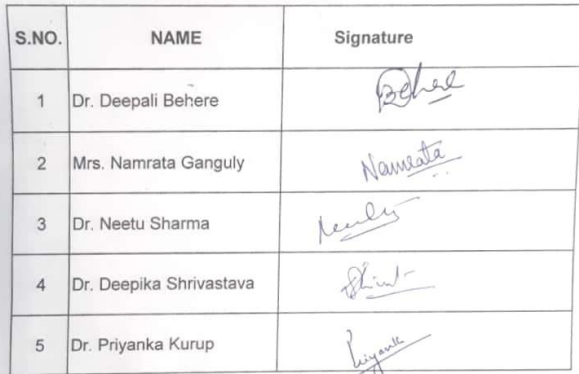 S.NO. NAME Signature
1 Dr. Deepali Behere Behere
2 Mrs. Namrata Ganguly Namrata
3 Dr. Neetu Sharma
4 Dr. Deepika Shrivastava
5 Dr. Priyanka Kurup Priyanka